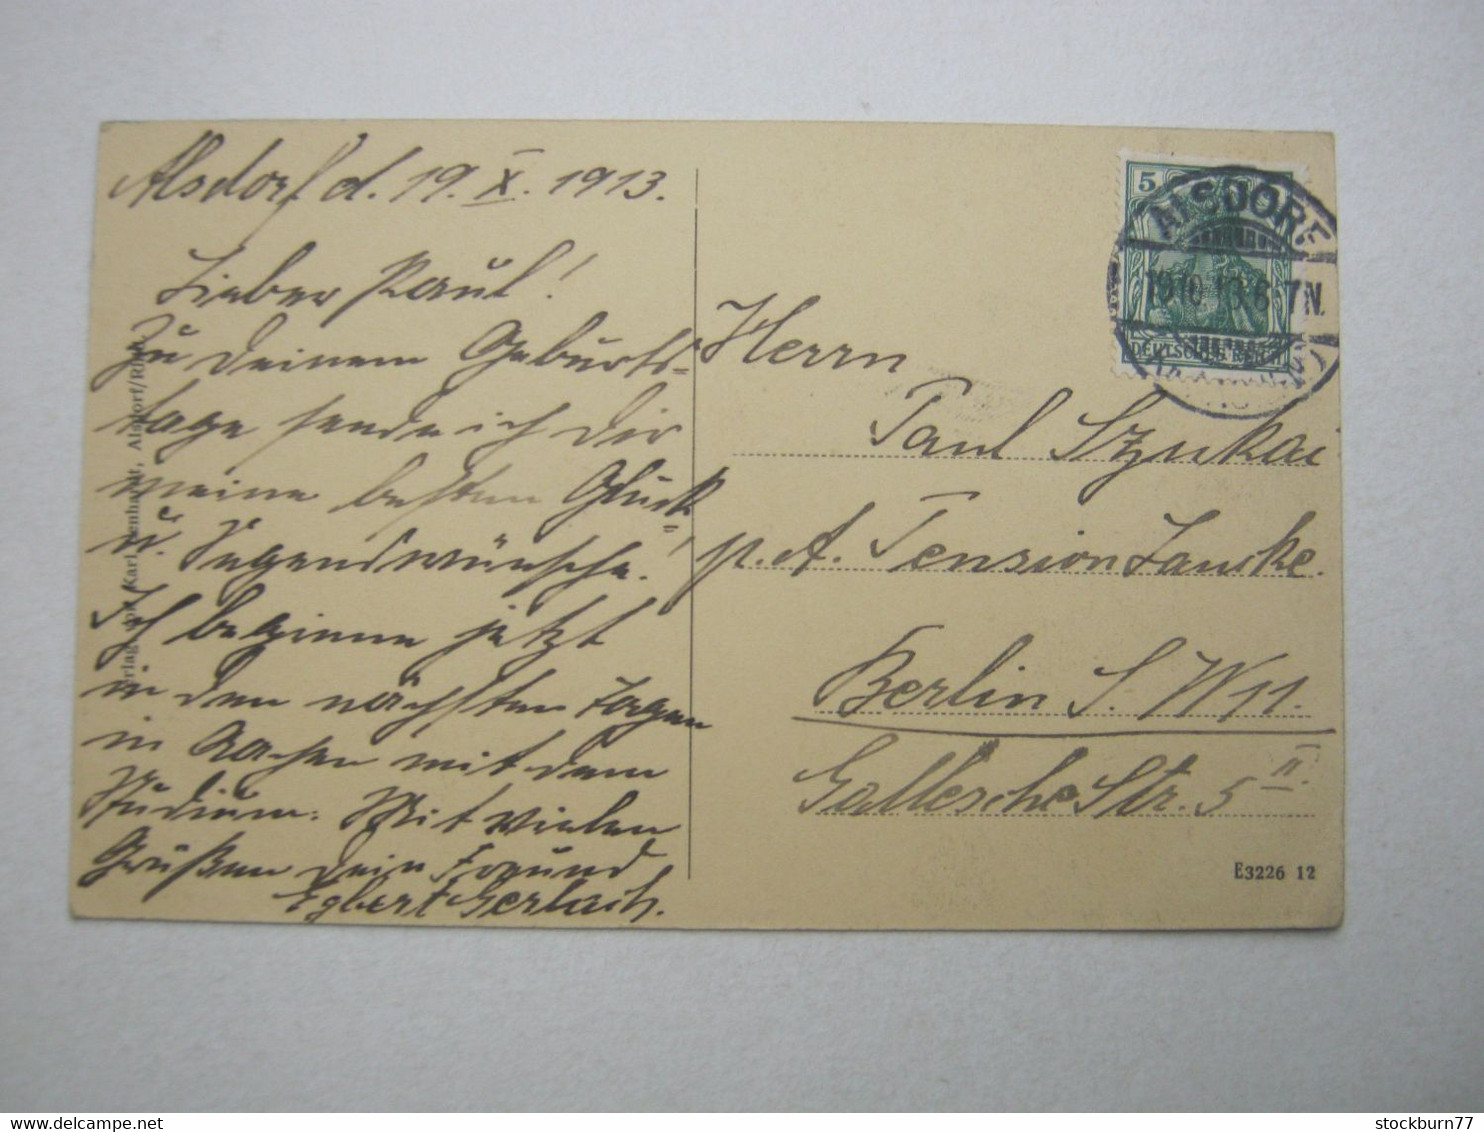 Alsdorf d. 19. X. 1913.
Lieber Paul!
Zu Deinem Geburts=
tage sende ich Dir
meine besten Glück=
u. Segenswünsche!
Ich beginne jetzt
in den nächsten Tagen
in Aachen mit dem
Studium. Mit vielen
Grüßen Dein Freund
Egbert Gerlach.
Herrn
Paul Szyukai
p. A. Pension
Berlin S. W 11.
Str. 5 II.
5
DEUTSCHES REICH
ALSDORF
19.10.13. 6-7N.
Karl
Alsdorf/Rhld.
E3226 12
stockburn77
www.delcampe.net